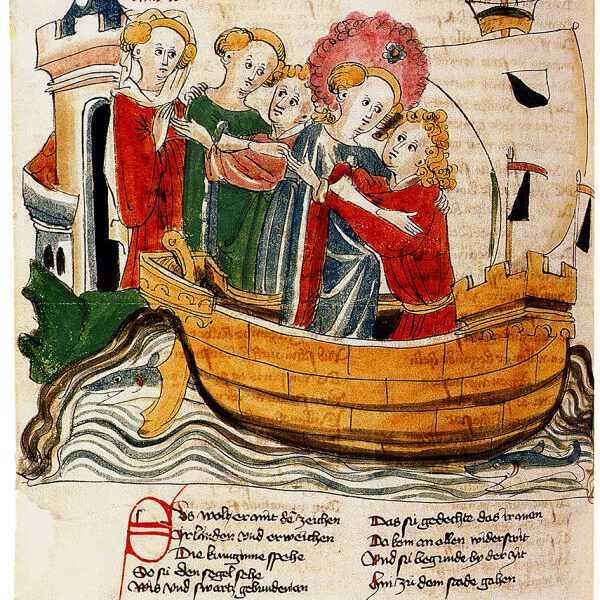 Das wolt er mit dē zeichen
Erlinden und erweichen
Die kunginne spehe
So sü den segel sehe
Wis und swartz gebunden an
Das sü gedechte das
Da kom an allen widerstrit
Und sü begunde by der zit
Hin zu dem stade gahen